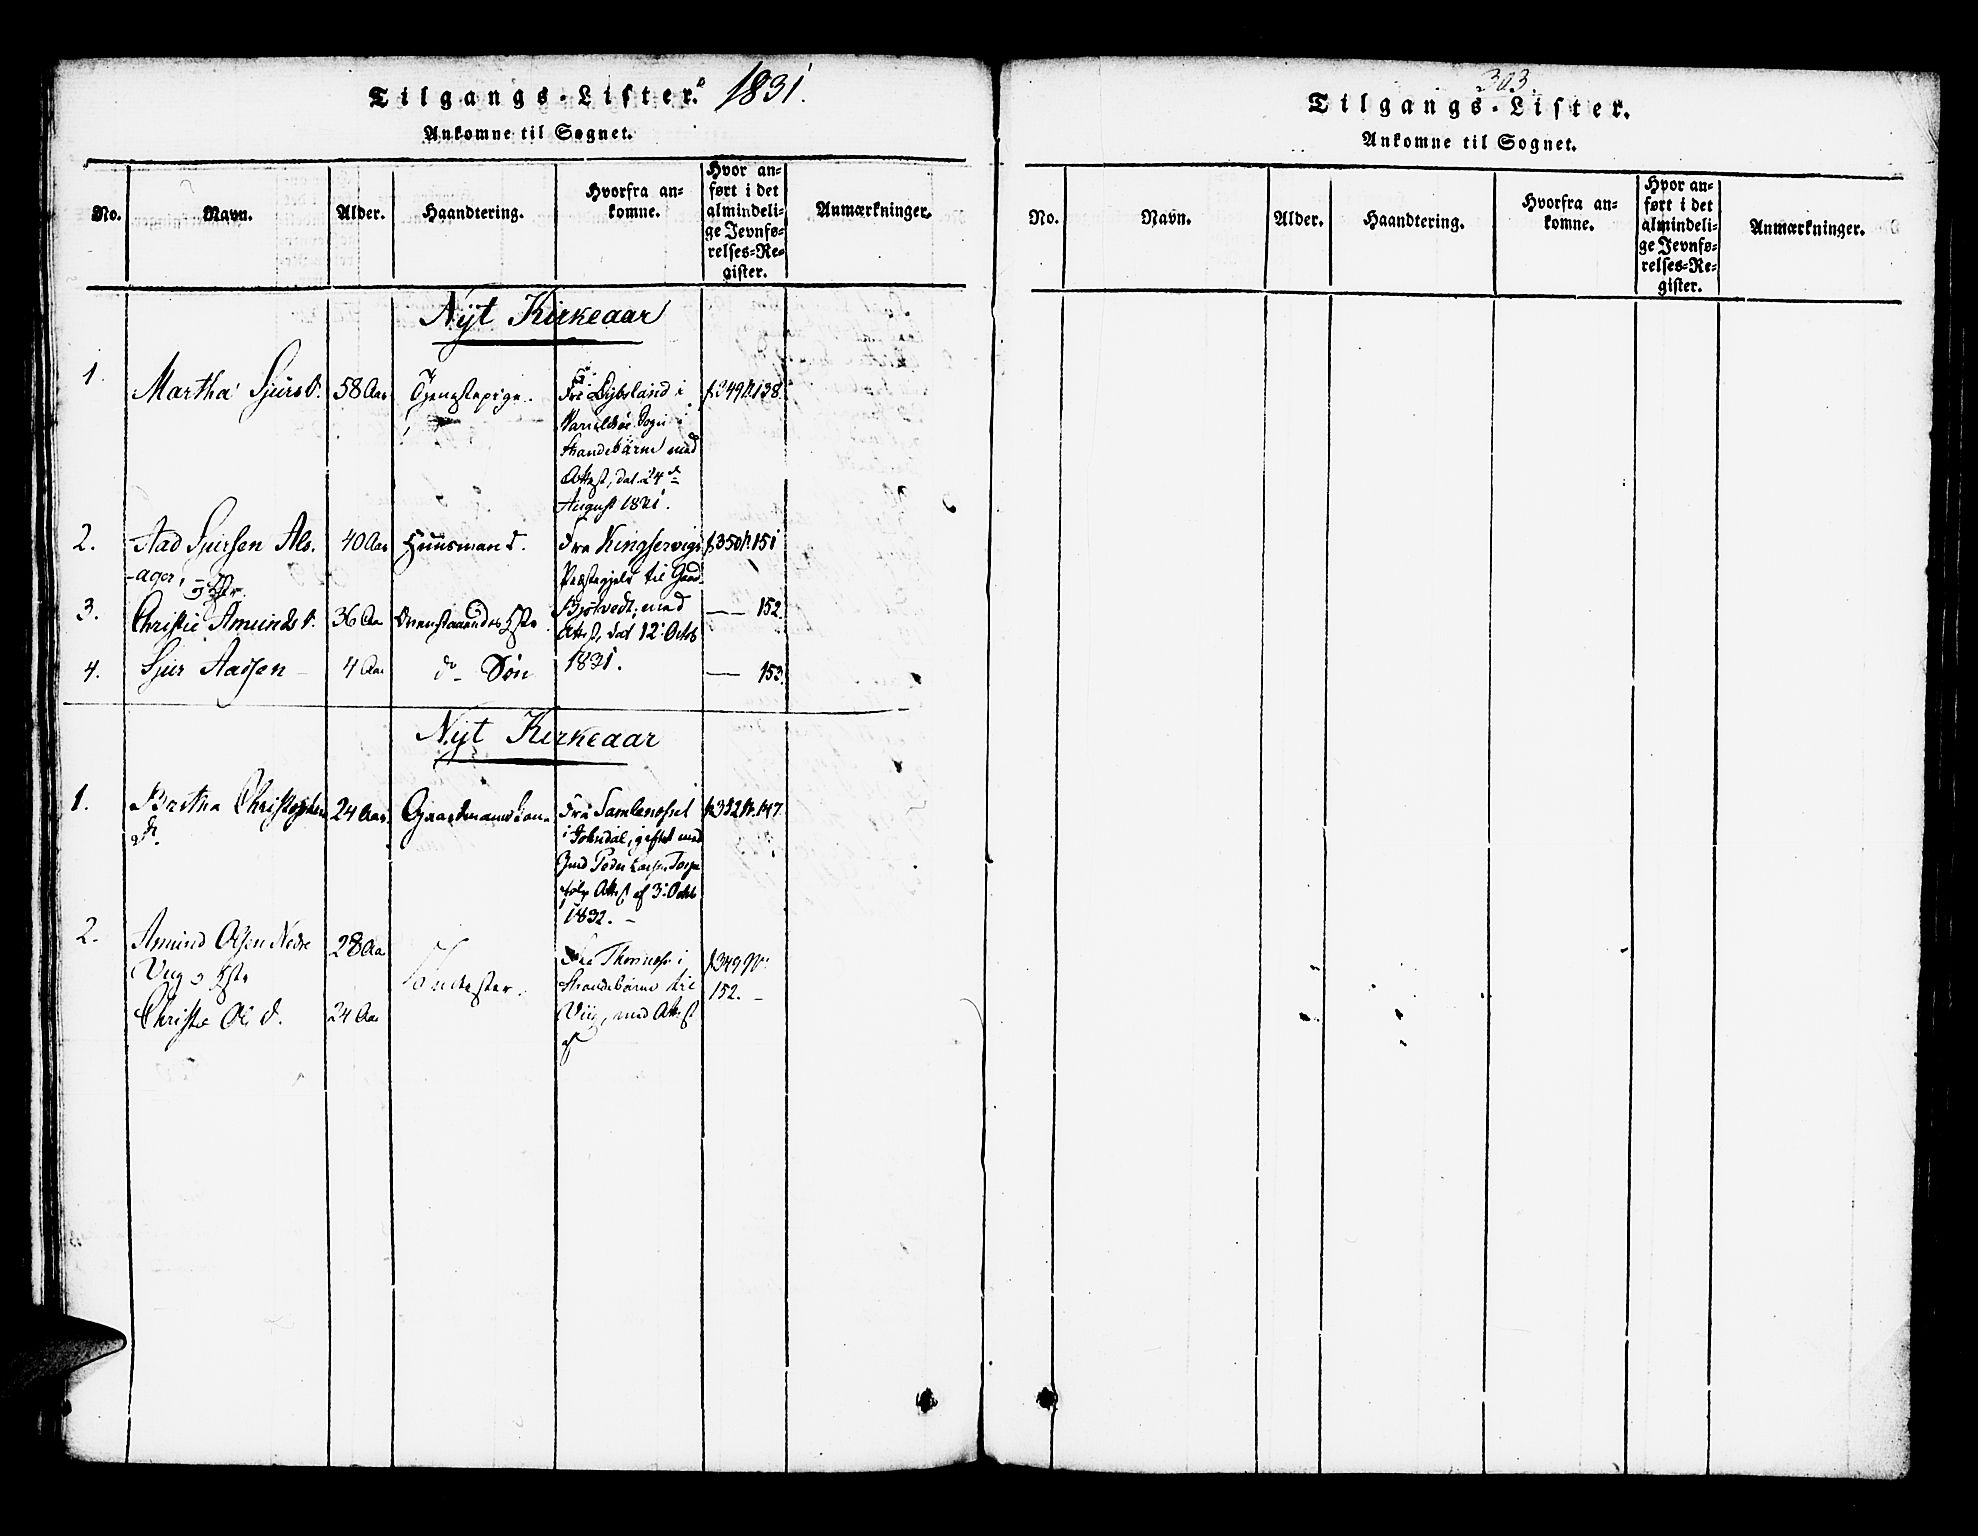 Tilgangs-Lister. 1831.
Ankomne til Sognet.
No. Navn. Alder. Haandtering. Hvorfra ankomne. Hvor anført i det almindelige Jevnførelses-Register. Anmærkninger.
Nyt Kirkeaar
1. Martha Sjursd. 58 Aar Tjenestepige. Fra i f. 349 N. 138
Sogn i
Strandebarm med
Attest, dat. 24de
August 1831.
2. Aad Sjursen Als- 40 Aar Huusmand. Fra Kingservigs f. 350 N. 151
ager, og Hstr. Præstegjeld til Gaard
3. Christie Amundsd. 36 Aar Ovenstaaendes Hstr. med — 152.
Attest, dat 12 Octb
4. Sjur Aadsen — 4 Aar do — Søn 1831. — 153.
Nyt Kirkeaar
1. Bretha Christophers 24 Aar. Gaardmandskone Fra Samlenæset f. 352 N. 147
d. i Jondal, giftet med
Gmd Peder Larsen
følge Attest af 3 Octb
1832. —
2. Amund Olsen Nedre 28 Aar Fra i f. 349 N.
Viig og Hstr Strandebarm til 152. —
Christie Ols d. 24 Aar Viig, med Attest
af
303.
Tilgangs-Lister.
Ankomne til Sognet.
No. Navn. Alder. Haandtering. Hvorfra ankomne. Hvor anført i det almindelige Jevnførelses-Register. Anmærkninger.